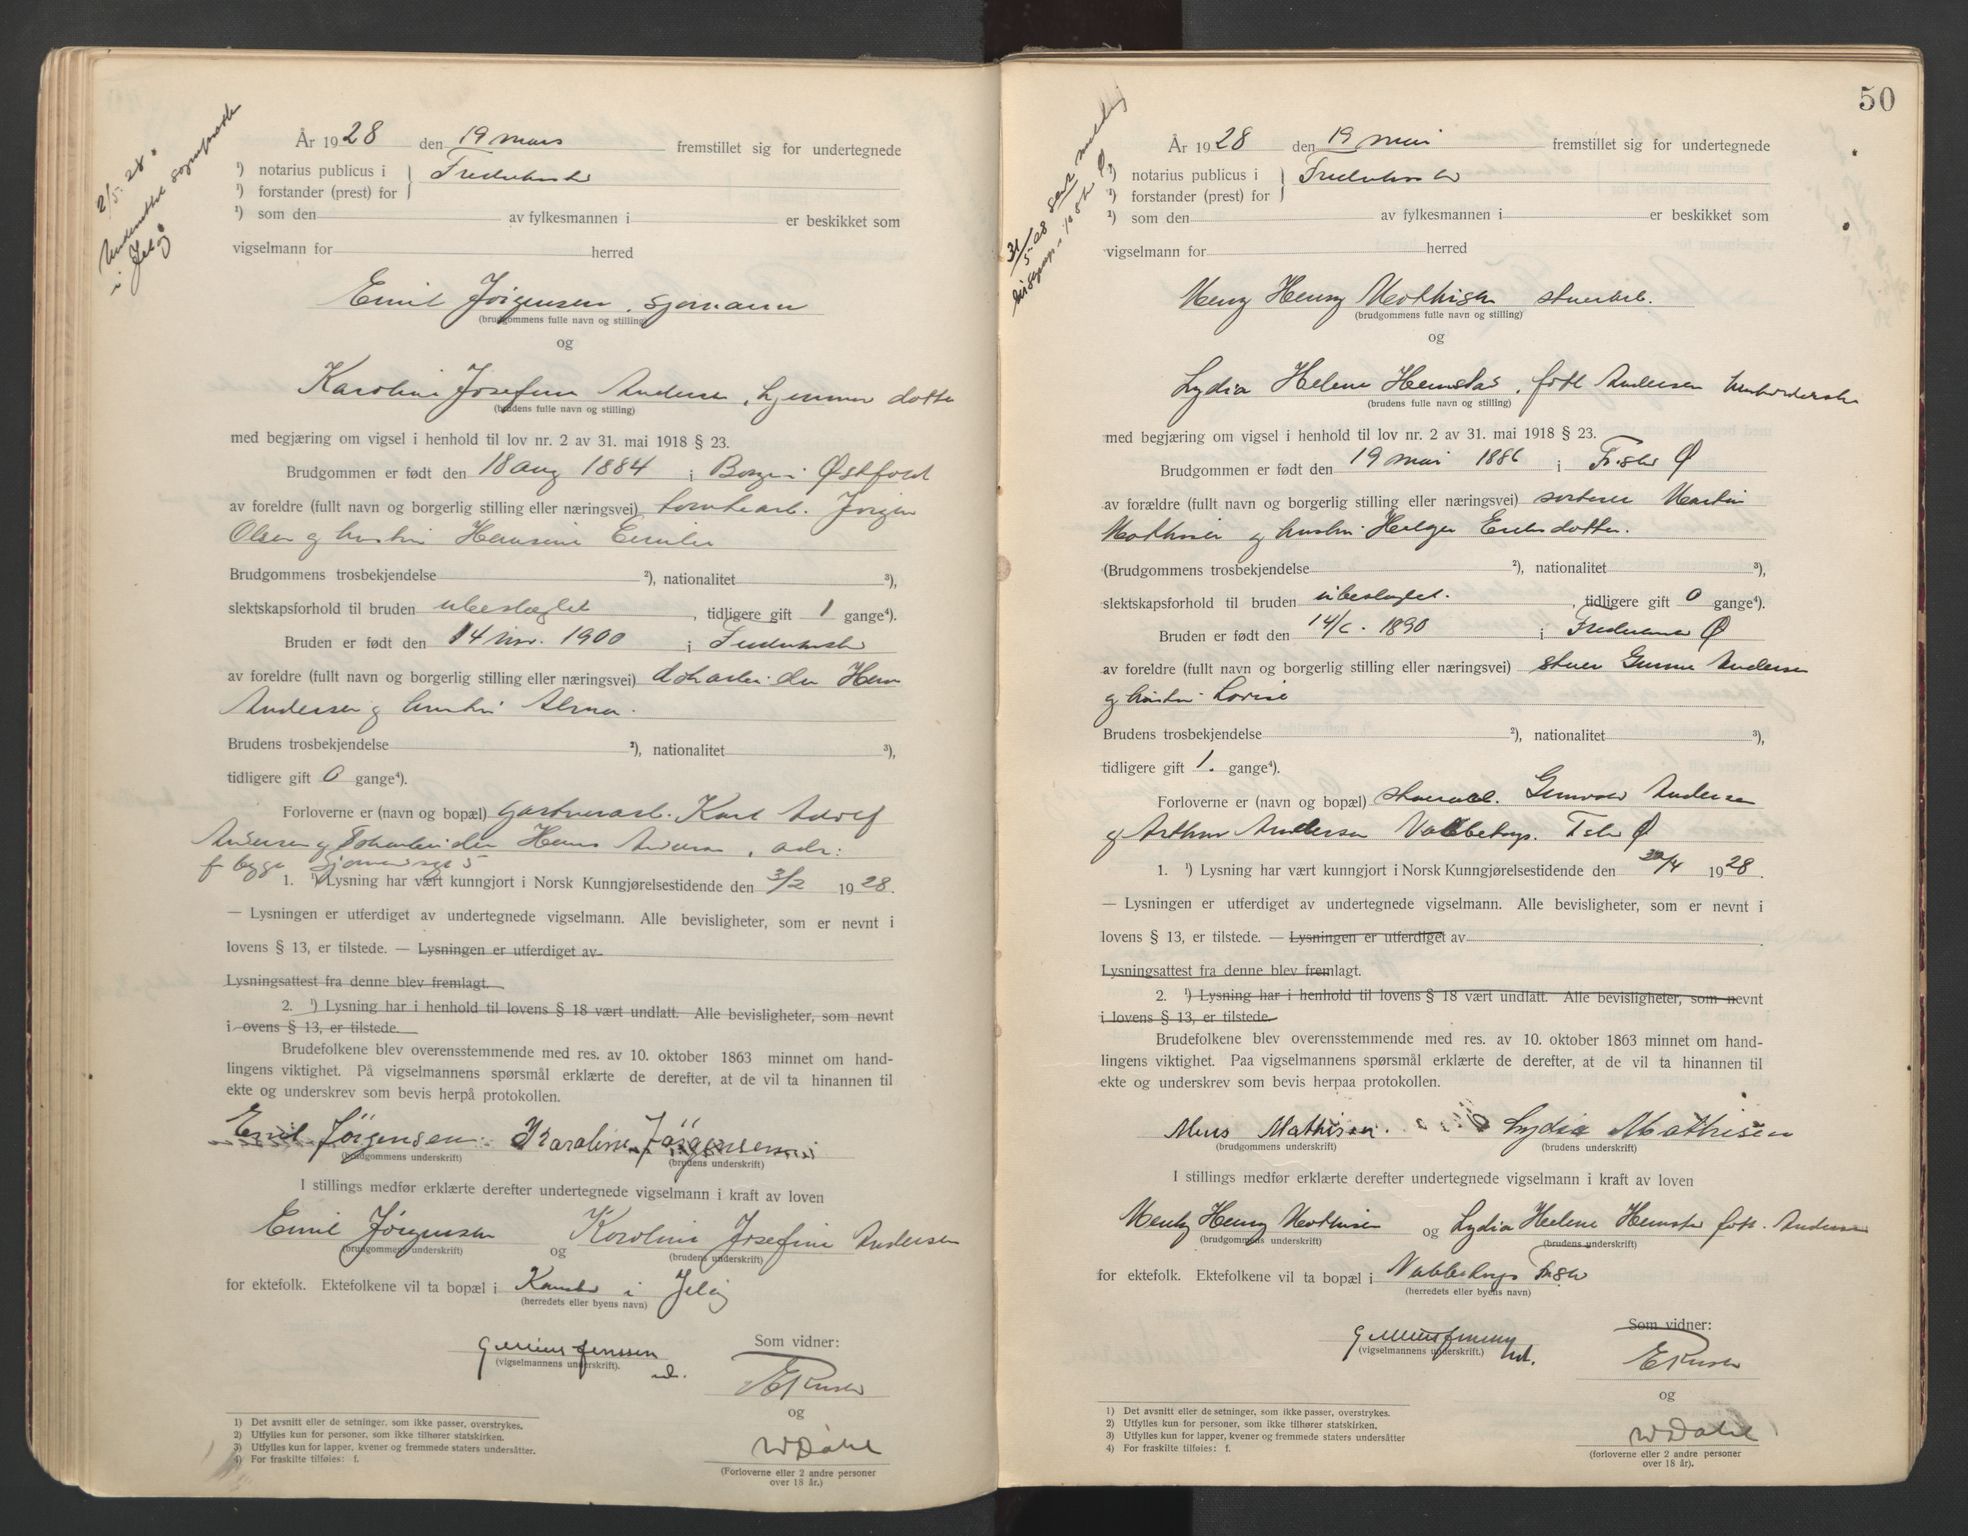 2/5. 28.
i Jeløy
År 1928 den 19 mars fremstillet sig for undertegnede
¹) notarius publicus i } Frederikstad
¹) forstander (prest) for
¹) som den av fylkesmannen i er beskikket som
vigselmann for herred
Emil Jørgensen, sjømann
(brudgommens fulle navn og stilling)
og
Karoline Josefine Andersen, hjemmev. datter
(brudens fulle navn og stilling)
med begjæring om vigsel i henhold til lov nr. 2 av 31. mai 1918 § 23.
Brudgommen er født den 18 aug 1884 i Borge i Østfold
av foreldre (fullt navn og borgerlig stilling eller næringsvei) tomtearb. Jørgen
Olsen og hustru Hansine Emilie
Brudgommens trosbekjendelse ²), nationalitet ³),
slektskapsforhold til bruden ubeslægtet, tidligere gift 1 gange⁴).
Bruden er født den 14 nov. 1900 i Frederikstad
av foreldre (fullt navn og borgerlig stilling eller næringsvei) dokarbeider Hans
Andersen og hustru Alma.
Brudens trosbekjendelse ²), nationalitet ³),
tidligere gift 0 gange⁴).
Forloverne er (navn og bopæl) gartnerarb. Karl Adolf
Andersen og dokarbeider Hans Andersen, adr:
1. ¹) Lysning har vært kunngjort i Norsk Kunngjørelsestidende den 3/2 1928.
— Lysningen er utferdiget av undertegnede vigselmann. Alle bevisligheter, som er nevnt i
lovens § 13, er tilstede. — Lysningen er utferdiget av
Lysningsattest fra denne blev fremlagt.
2. ¹) Lysning har i henhold til lovens § 18 vært undlatt. Alle bevisligheter, som nevnt
i ovens § 13, er tilstede.
Brudefolkene blev overensstemmende med res. av 10. oktober 1863 minnet om hand-
lingens viktighet. På vigselmannens spørsmål erklærte de derefter, at de vil ta hinannen til
ekte og underskrev som bevis herpå protokollen.
Emil Jörgensen. Karoline Jörgensen
(brudgommens underskrift) (brudens underskrift)
I stillings medfør erklærte derefter undertegnede vigselmann i kraft av loven
Emil Jørgensen og Karoline Josefine Andersen
(brudgommens underskrift) (brudens underskrift)
for ektefolk. Ektefolkene vil ta bopæl i Kambo i Jeløy
(herredets eller byens navn)
Som vidner:
(vigselmannens underskrift).
og
W Dahl
(Forloverne eller 2 andre personer
over 18 år.)
1) Det avsnitt eller de setninger, som ikke passer, overstrykes.
2) Utfylles kun for personer, som ikke tilhører statskirken.
3) Utfylles kun for lapper, kvener og fremmede staters undersåtter.
4) For fraskilte tilføies: f.
50
31/5-28 sendt melding
År 1928 den 19 mai fremstillet sig for undertegnede
¹) notarius publicus i } Frederikstad
¹) forstander (prest) for
¹) som den av fylkesmannen i er beskikket som
vigselmann for herred
Mentz Henry Mathisen stuerarb.
(brudgommens fulle navn og stilling)
og
Lydia Helene Hemstad, født Andersen
(brudens fulle navn og stilling)
med begjæring om vigsel i henhold til lov nr. 2 av 31. mai 1918 § 23.
Brudgommen er født den 19 mai 1886 i Fr.stad Ø
av forældre (fullt navn og borgerlig stilling eller næringsvei) sorterer Martin
Mathisen og hustru Helga Eriksdatter.
(Brudgommens trosbekjendelse ²), nationalitet ³),
slektskapsforhold til bruden ubeslægtet., tidligere gift 0 gange⁴).
Bruden er født den 14/6. 1890 i Frederikstad Ø
av foreldre (fullt navn og borgerlig stilling eller næringsvei) stuer Gunne Andersen
og hustru Lovise
Brudens trosbekjendelse ²), nationalitet ³),
tidligere gift 1. gange⁴).
Forloverne er (navn og bopæl) stuerarb. Gunvald Andersen
og Arthur Andersen Nabbetorp. F.stad Ø
1. ¹) Lysning har vært kunngjort i Norsk Kunngjørelsestidende den /4 1928.
— Lysningen er utferdiget av undertegnede vigselmann. Alle bevisligheter, som er nevnt i
lovens § 13, er tilstede. — Lysningen er utferdiget av
Lysningsattest fra denne blev fremlagt.
2. ¹) Lysning har i henhold til lovens § 18 vært undlatt. Alle bevisligheter, som nevnt
i lovens § 13, er tilstede.
Brudefolkene blev overensstemmende med res. av 10. oktober 1863 minnet om hand-
lingens viktighet. Paa vigselmannens spørsmål erklærte de derefter, at de vil ta hinannen til
ekte og underskrev som bevis herpaa protokollen.
Mens Mathisen. Lydia Mathisen
(brudgommens underskrift) (brudens underskrift)
I stillings medfør erklærte derefter undertegnede vigselmann i kraft av loven
Mentz Henry Mathisen og Lydia Helene Hemstad født Andersen
(brudgommens underskrift) (brudens underskrift)
for ektefolk. Ektefolkene vil ta bopæl i Nabbetorp Fr.stad
(herredets eller byens navn)
Som vidner:
(vigselmannens underskrift.)
og
W Dahl
(forloverne eller 2 andre personer
over 18 år).
1) Det avsnitt eller de setninger, som ikke passer, overstrykes.
2) Utfylles kun for personer, som ikke tilhører statskirken.
3) Utfylles kun for lapper, kvener og fremmede staters undersåtter
4) For fraskilte tilføies: f.